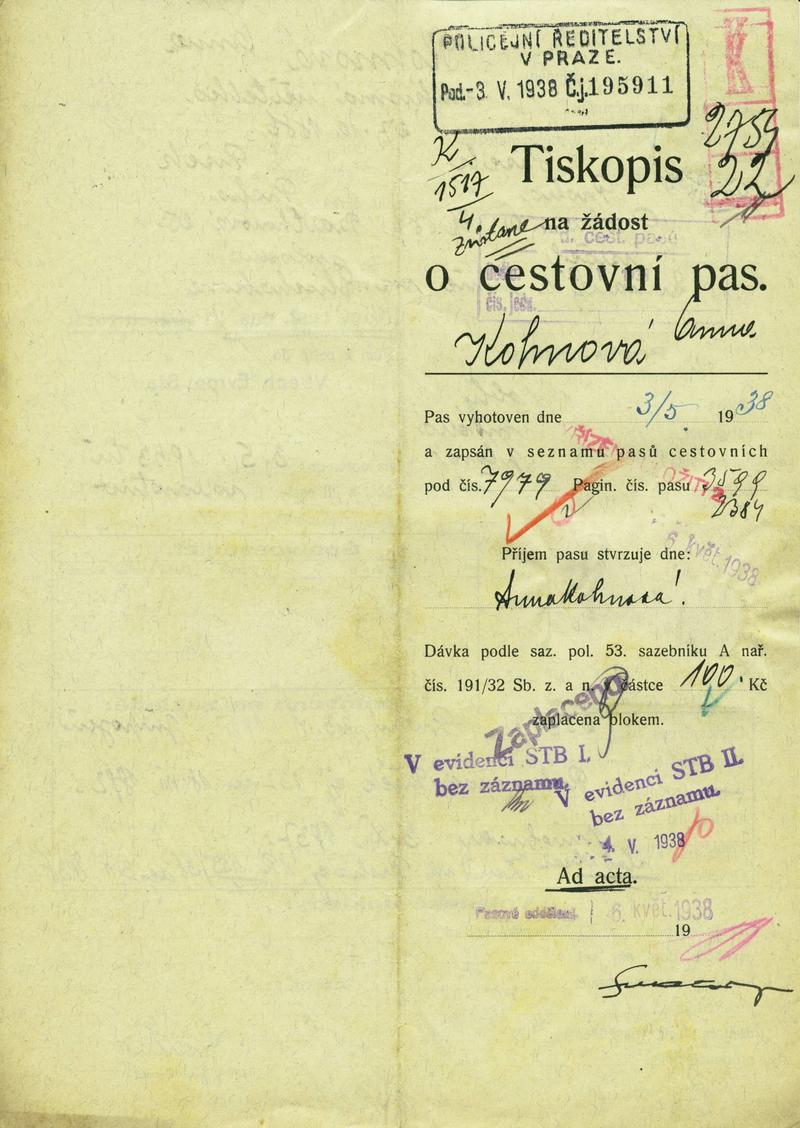 POLICEJNÍ ŘEDITELSTVÍ
V PRAZE.
Pod.-3. V. 1938 Č.j.195911
K
2754
22
K.
1517
4
Tiskopis
zůstane na žádost
o cestovní pas.
Kohnová Anna
Pas vyhotoven dne 3/5 1938
a zapsán v seznamu pasů cestovních
pod čís. 7979 Pagin. čís. pasu 3599
2384
6. květ. 1938
Příjem pasu stvrzuje dne:
Anna Kohnová!
Dávka podle saz. pol. 53. sazebníku A nař.
čís. 191/32 Sb. z. a n. v částce 100 Kč
zaplacena blokem.
Zaplaceno
V evidenci STB I.
bez záznamu.
V evidenci STB II.
bez záznamu.
4. V. 1938
Ad acta.
Pasové oddělení 6. květ. 1938
19